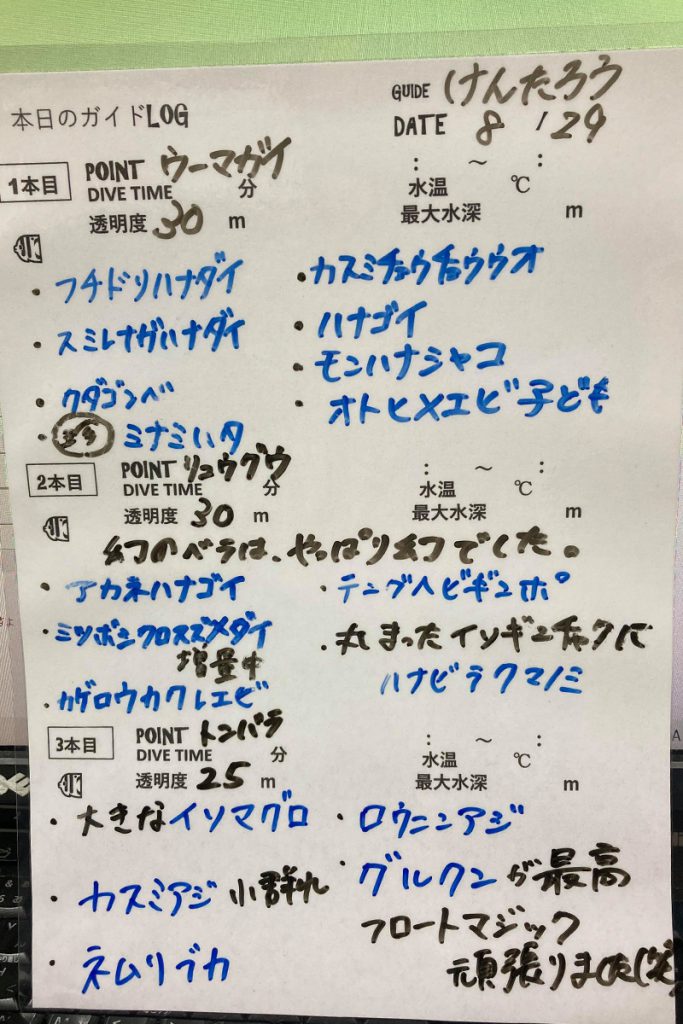 本日のガイドLOG
GUIDE けんたろう
DATE 8/29
1本目
POINT ウーマガイ
DIVE TIME 分
透明度 30 m
: ～ :
水温 ℃
最大水深 m
・フチドリハナダイ
・スミレナガハナダイ
・クダゴンベ
・ミナミハタ
・カスミチョウチョウウオ
・ハナゴイ
・モンハナシャコ
・オトヒメエビ子ども
2本目
POINT リュウグウ
DIVE TIME 分
透明度 30 m
: ～ :
水温 ℃
最大水深 m
幻のベラは、やっぱり幻でした。
・アカネハナゴイ
・ミツボシクロスズメダイ
増量中
・カゲロウカクレエビ
・テングヘビギンポ
・丸まったイソギンチャクに
ハナビラクマノミ
3本目
POINT トンバラ
DIVE TIME 分
透明度 25 m
: ～ :
水温 ℃
最大水深 m
・大きなイソマグロ
・カスミアジ小群れ
・ネムリブカ
・ロウニンアジ
・グルクンが最高
フロートマジック
頑張りました(笑)